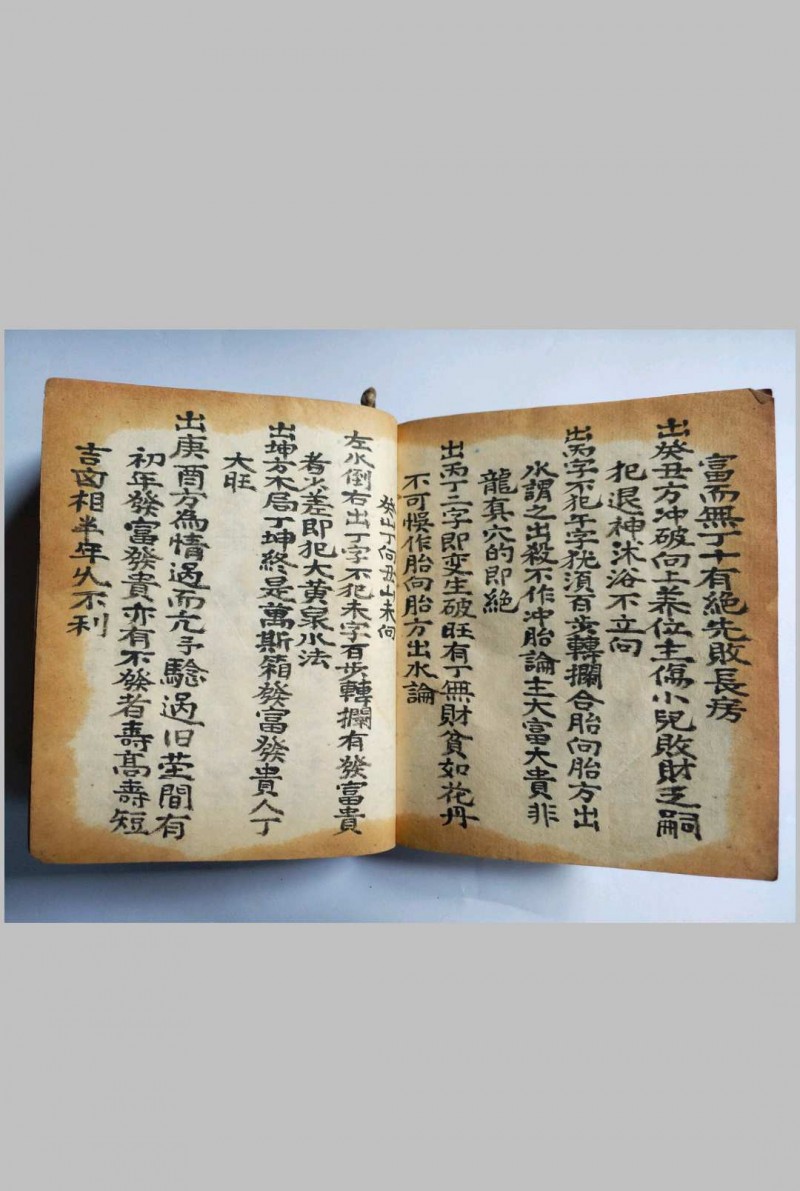 富而無丁十有絶先敗長房
出癸丑方冲破向上养位主傷小兒敗財乏嗣
犯退神沐浴不立向
出丙字不犯午字犹須百步轉攔合胎向胎方出
水謂之出殺不作冲胎論主大富大貴非
龍真穴的即絶
出丙丁二字即变生破旺有丁無財貧如花丹
不可悞作胎向胎方出水論
癸山丁向丑山未向
左水倒右出丁字不犯未字百步轉攔有發富貴
者少差即犯大黄泉水法
出坤方木局丁坤終是萬斯箱發富發貴人丁
大旺
出庚酉方為情過而亢予驗過旧茔間有
初年發富發貴亦有不發者壽高壽短
吉凶相半年久不利